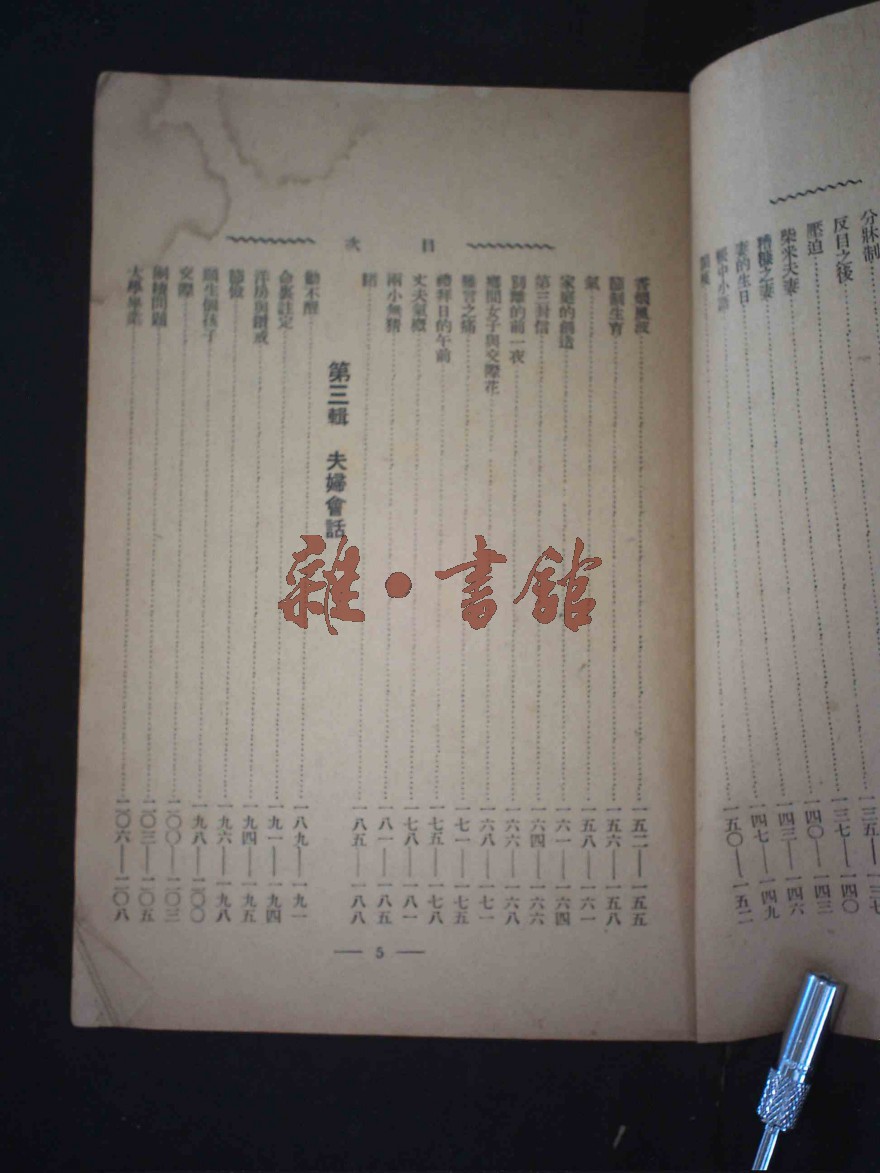 分牀制 一三五——一三七
反目之後 一三七——一四〇
壓迫 一四〇——一四三
柴米夫妻 一四三——一四六
糟糠之妻 一四七——一四九
妻的生日
帳中小語 一五〇——一五二
目次
香烟風波 一五二——一五五
節制生育 一五六——一五八
氣 一五八——一六一
家庭的創造 一六一——一六四
第三封信 一六四——一六六
別離的前一夜 一六六——一六八
鄉間女子與交際花 一六八——一七一
難言之痛 一七一——一七五
禮拜日的午前 一七五——一七八
丈夫氣概 一七八——一八一
兩小無猜 一八一——一八五
賭 一八五——一八八
第三輯 夫婦會話
勸不醒 一八九——一九一
命裏註定 一九一——一九四
洋房與鑽戒 一九四——一九五
節儉 一九六——一九八
願生個孩子 一九八——二〇〇
交際 二〇〇——二〇三
同棲問題 二〇三——二〇五
大學畢業 二〇六——二〇八
— 5 —
雜·書館